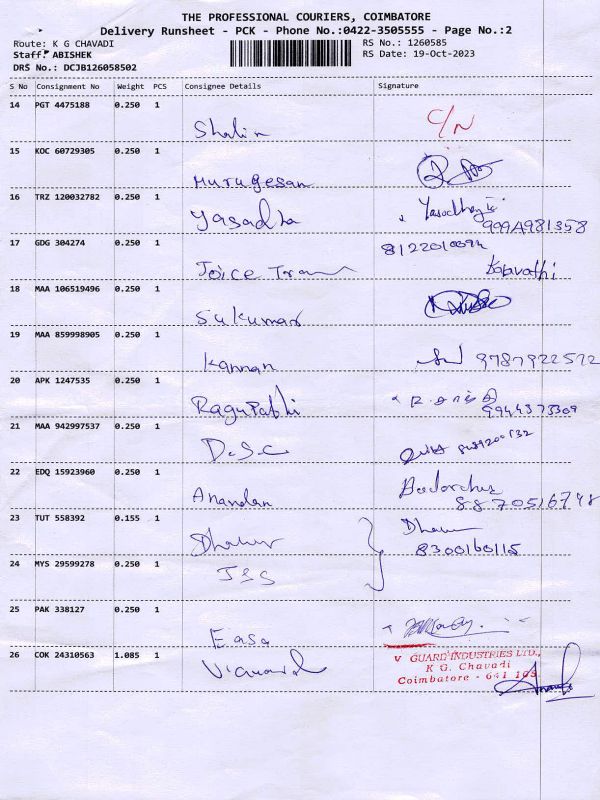 THE PROFESSIONAL COURIERS, COIMBATORE
Delivery Runsheet - PCK - Phone No.:0422-3505555 - Page No.:2
Route: K G CHAVADI
RS No.: 1260585
Staff: ABISHEK
RS Date: 19-Oct-2023
DRS No.: DCJB126058502
S No Consignment No Weight PCS Consignee Details Signature
14 PGT 4475188 0.250 1
Shalin C/N
15 KOC 60729305 0.250 1
Murugesan
16 TRZ 120032782 0.250 1
Yasadha
999A981358
17 GDG 304274 0.250 1
Joice Kalavathi
18 MAA 106519496 0.250 1
Sukumar
19 MAA 859998905 0.250 1
Kannan 9787922572
20 APK 1247535 0.250 1
Ragupathi 9944373309
21 MAA 942997537 0.250 1
D.S.C
22 EDQ 15923960 0.250 1
Anandan 8870516748
23 TUT 558392 0.155 1
8300160115
24 MYS 29599278 0.250 1
J&S
25 PAK 338127 0.250 1
Easa
26 COK 24310563 1.085 1
V GUARD INDUSTRIES LTD.,
K G. Chavadi
Coimbatore - 641 105
V Guard